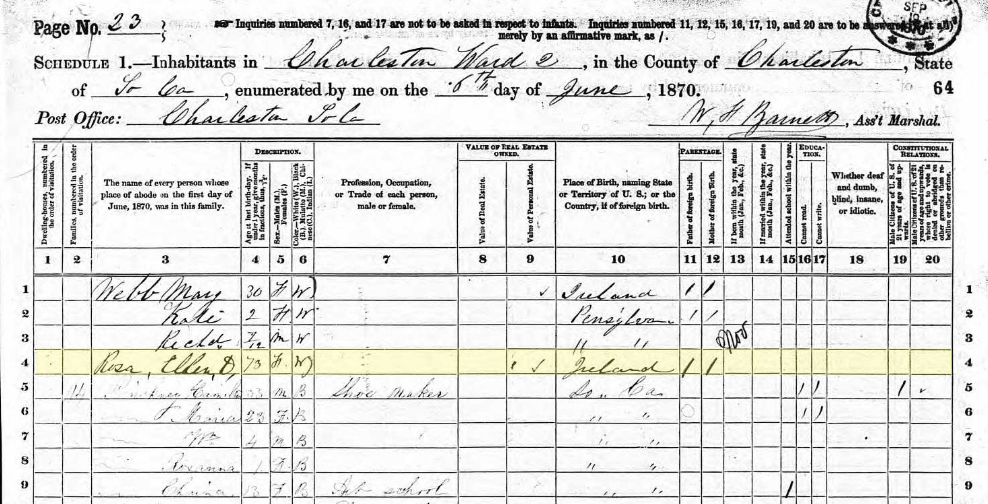 Page No. 23
☞ Inquiries numbered 7, 16, and 17 are not to be asked in respect to infants. Inquiries numbered 11, 12, 15, 16, 17, 19, and 20 are to be answered (if at all)
merely by an affirmative mark, as /.
SEP
1870
SCHEDULE 1.—Inhabitants in Charleston Ward 2, in the County of Charleston, State
of So Ca, enumerated by me on the 6th day of June, 1870.
64
Post Office: Charleston So Ca
W, H Barnett, Ass't Marshal.
Dwelling-houses, numbered in the order of visitation.
Families, numbered in the order of visitation.
The name of every person whose place of abode on the first day of June, 1870, was in this family.
DESCRIPTION.
Age at last birth-day. If under 1 year, give months in fractions, thus, 3/12
Sex.—Males (M.), Females (F.)
Color.—White (W.), Black (B.), Mulatto (M.), Chinese (C.), Indian (I.)
Profession, Occupation, or Trade of each person, male or female.
VALUE OF REAL ESTATE OWNED.
Value of Real Estate.
Value of Personal Estate.
Place of Birth, naming State or Territory of U. S.; or the Country, if of foreign birth.
PARENTAGE.
Father of foreign birth.
Mother of foreign birth.
If born within the year, state month (Jan., Feb., &c.)
If married within the year, state month (Jan., Feb., &c.)
Attended school within the year.
EDUCATION.
Cannot read.
Cannot write.
Whether deaf and dumb, blind, insane, or idiotic.
CONSTITUTIONAL RELATIONS.
Male Citizens of U. S. of 21 years of age and upwards.
Male Citizens of U. S. of 21 years of age and upwards, where right to vote is denied or abridged on other grounds than rebellion or other crime.
1 2 3 4 5 6 7 8 9 10 11 12 13 14 15 16 17 18 19 20
1 Webb Mary 30 F W Ireland / / 1
2 Kate 2 F W Pensylva / / 2
3 Richd 7/12 M W " " Nov 3
4 Rosa, Ellen, D, 73 F W Ireland / / 4
5 14 33 M B Shoe Maker So Ca / / / 5
6 Maria 23 F B " " / / 6
7 Wm 4 M B " " 7
8 Rosanna 1 F B " " 8
9 13 F B school " " / 9